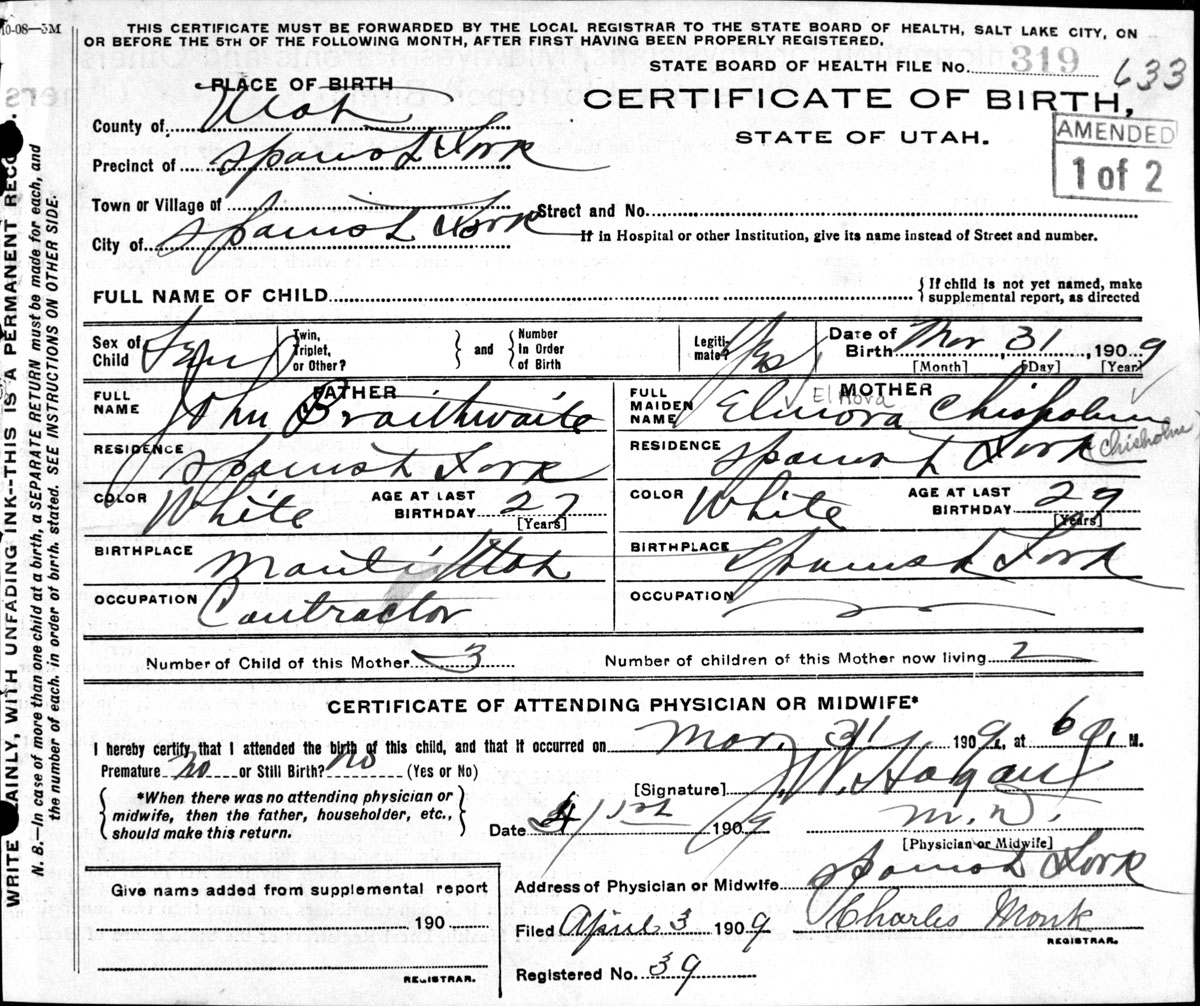 10-08—3M
THIS CERTIFICATE MUST BE FORWARDED BY THE LOCAL REGISTRAR TO THE STATE BOARD OF HEALTH, SALT LAKE CITY, ON
OR BEFORE THE 5TH OF THE FOLLOWING MONTH, AFTER FIRST HAVING BEEN PROPERLY REGISTERED.
STATE BOARD OF HEALTH FILE No. 319 633
PLACE OF BIRTH
CERTIFICATE OF BIRTH,
STATE OF UTAH.
AMENDED
1 of 2
County of Utah
Precinct of Spanish Fork
Town or Village of
Street and No.
City of Spanish Fork
If in Hospital or other Institution, give its name instead of Street and number.
FULL NAME OF CHILD
{ If child is not yet named, make
supplemental report, as directed
Sex of Child Fem
Twin, Triplet, or Other?
and
Number In Order of Birth
Legiti-mate? Yes
Date of Birth Mar 31, 1909
[Month] [Day] [Year]
FATHER
FULL NAME John Braithwaite
RESIDENCE Spanish Fork
COLOR White
AGE AT LAST BIRTHDAY 27
[Years]
BIRTHPLACE Manti Utah
OCCUPATION Contractor
MOTHER
FULL MAIDEN NAME Elinora Chisholm
Elnora
Chisholm
RESIDENCE Spanish Fork
COLOR White
AGE AT LAST BIRTHDAY 29
[Years]
BIRTHPLACE Spanish Fork
OCCUPATION
Number of Child of this Mother 3
Number of children of this Mother now living 2
CERTIFICATE OF ATTENDING PHYSICIAN OR MIDWIFE*
I hereby certify that I attended the birth of this child, and that it occurred on Mar. 31 1909, at 6 a. M.
Premature no or Still Birth? no (Yes or No)
*When there was no attending physician or
midwife, then the father, householder, etc.,
should make this return.
[Signature] J.W. Hagan
M.D.
[Physician or Midwife]
Date 4/1st 1909
Give name added from supplemental report
190
REGISTRAR.
Address of Physician or Midwife Spanish Fork
Filed April 3 1909
Charles Monk
REGISTRAR.
Registered No. 39
WRITE PLAINLY, WITH UNFADING INK--THIS IS A PERMANENT RECORD.
N. B.—In case of more than one child at a birth, a SEPARATE RETURN must be made for each, and
the number of each, in order of birth, stated. SEE INSTRUCTIONS ON OTHER SIDE.